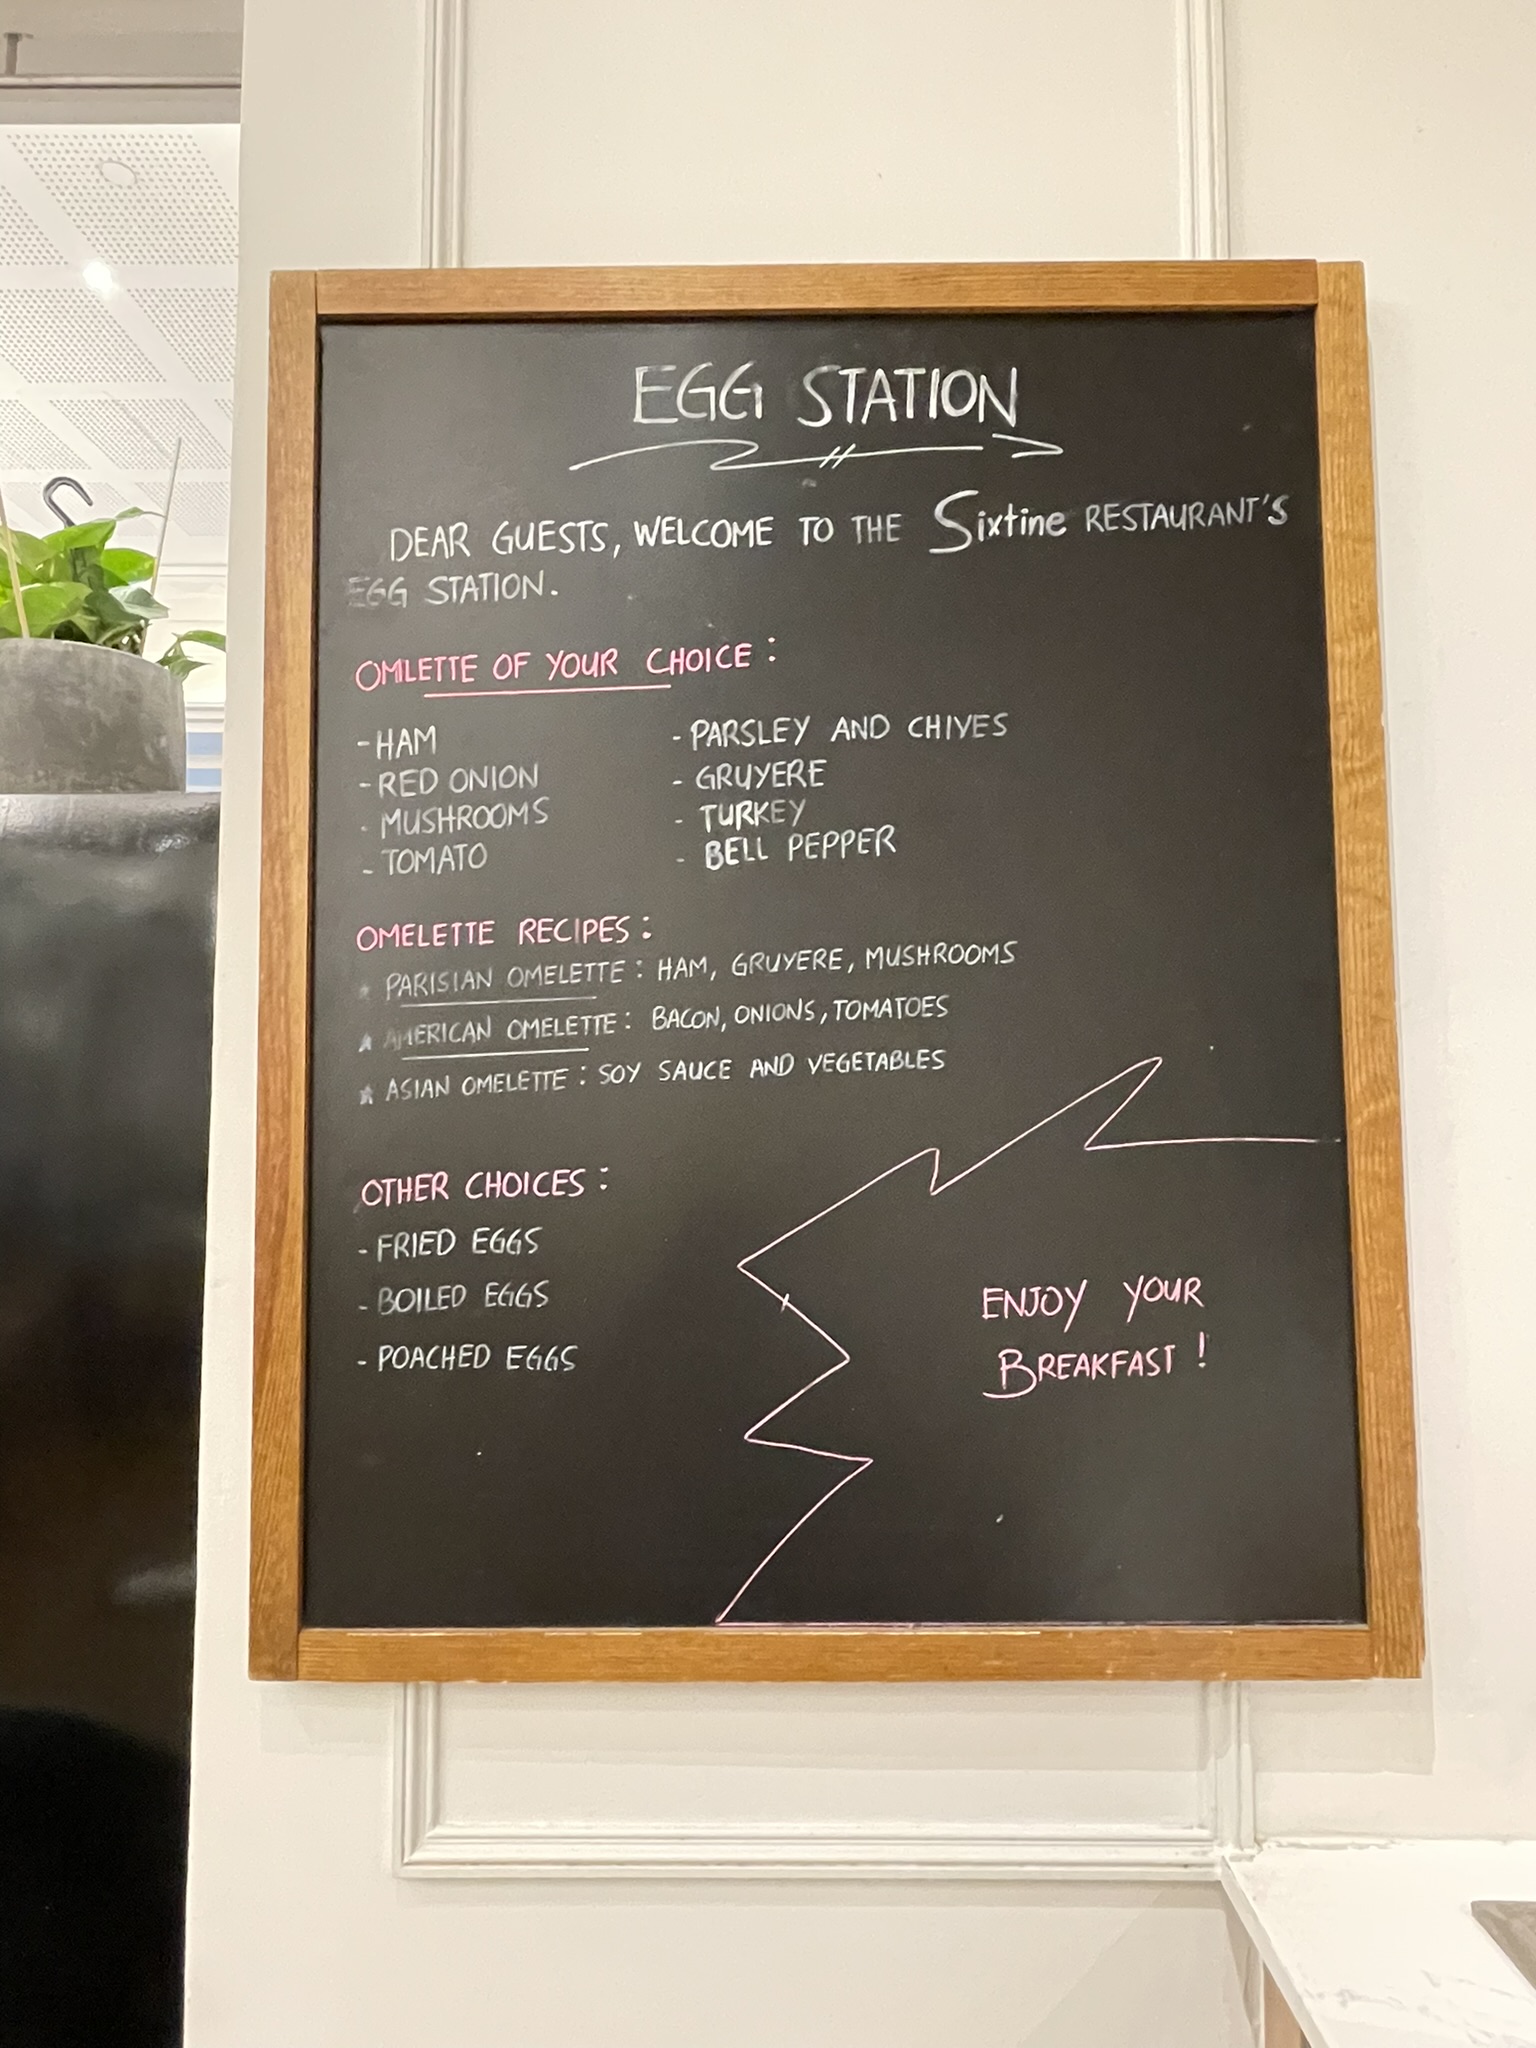 EGG STATION
DEAR GUESTS, WELCOME TO THE Sixtine RESTAURANT'S
EGG STATION.
OMLETTE OF YOUR CHOICE :
- HAM
- RED ONION
- MUSHROOMS
- TOMATO
- PARSLEY AND CHIVES
- GRUYERE
- TURKEY
- BELL PEPPER
OMELETTE RECIPES :
★ PARISIAN OMELETTE : HAM, GRUYERE, MUSHROOMS
★ AMERICAN OMELETTE : BACON, ONIONS, TOMATOES
★ ASIAN OMELETTE : SOY SAUCE AND VEGETABLES
OTHER CHOICES :
- FRIED EGGS
- BOILED EGGS
- POACHED EGGS
ENJOY YOUR
BREAKFAST !